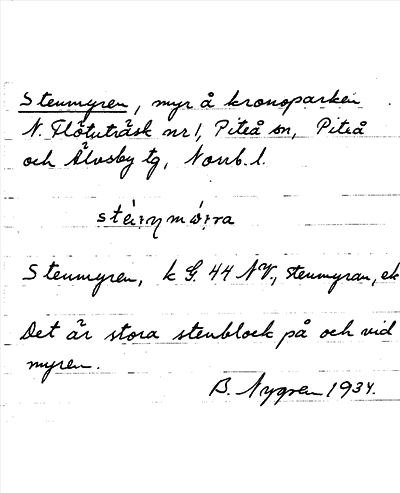 Stenmyren, myr å kronoparken
N. Flötuträsk nr 1, Piteå sn, Piteå
och Älvsby tg, Norrb. l.
Stenmyren, k G. 44 NV, stenmyran, ek
Det är stora stenblock på och vid
myren.
B. Nygren 1934.